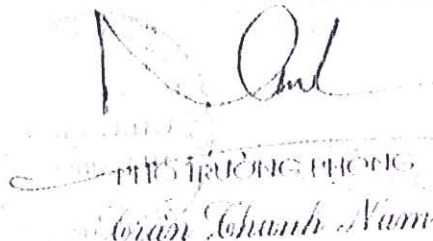 PHÓ TRƯỞNG PHÒNG
Trần Thanh Nam